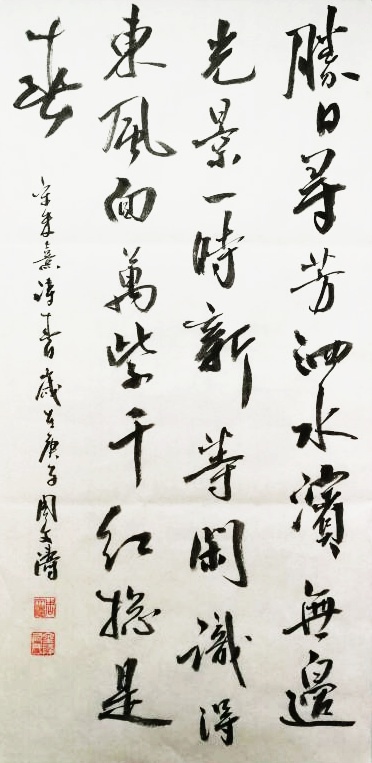 勝日尋芳泗水濱無邊
光景一時新等閑識得
東風面萬紫千紅總是
春
宋朱熹詩春日歲在庚子周文濤